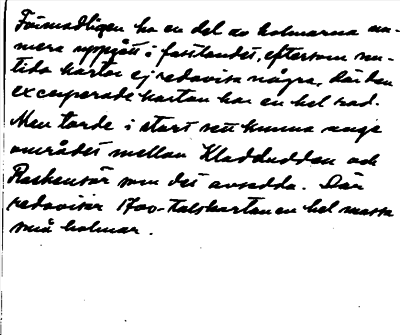 Förmodligen har en del av holmarna nu-
mera uppgått i fastlandet, eftersom nu-
tida kartor ej redovisar några, där den
excerperade kartan har en hel rad.
Men torde i stort sett kunna ange
området mellan Kladdudden och
som det avsedda. Där
redovisar 1700-talskartan en hel massa
små holmar.